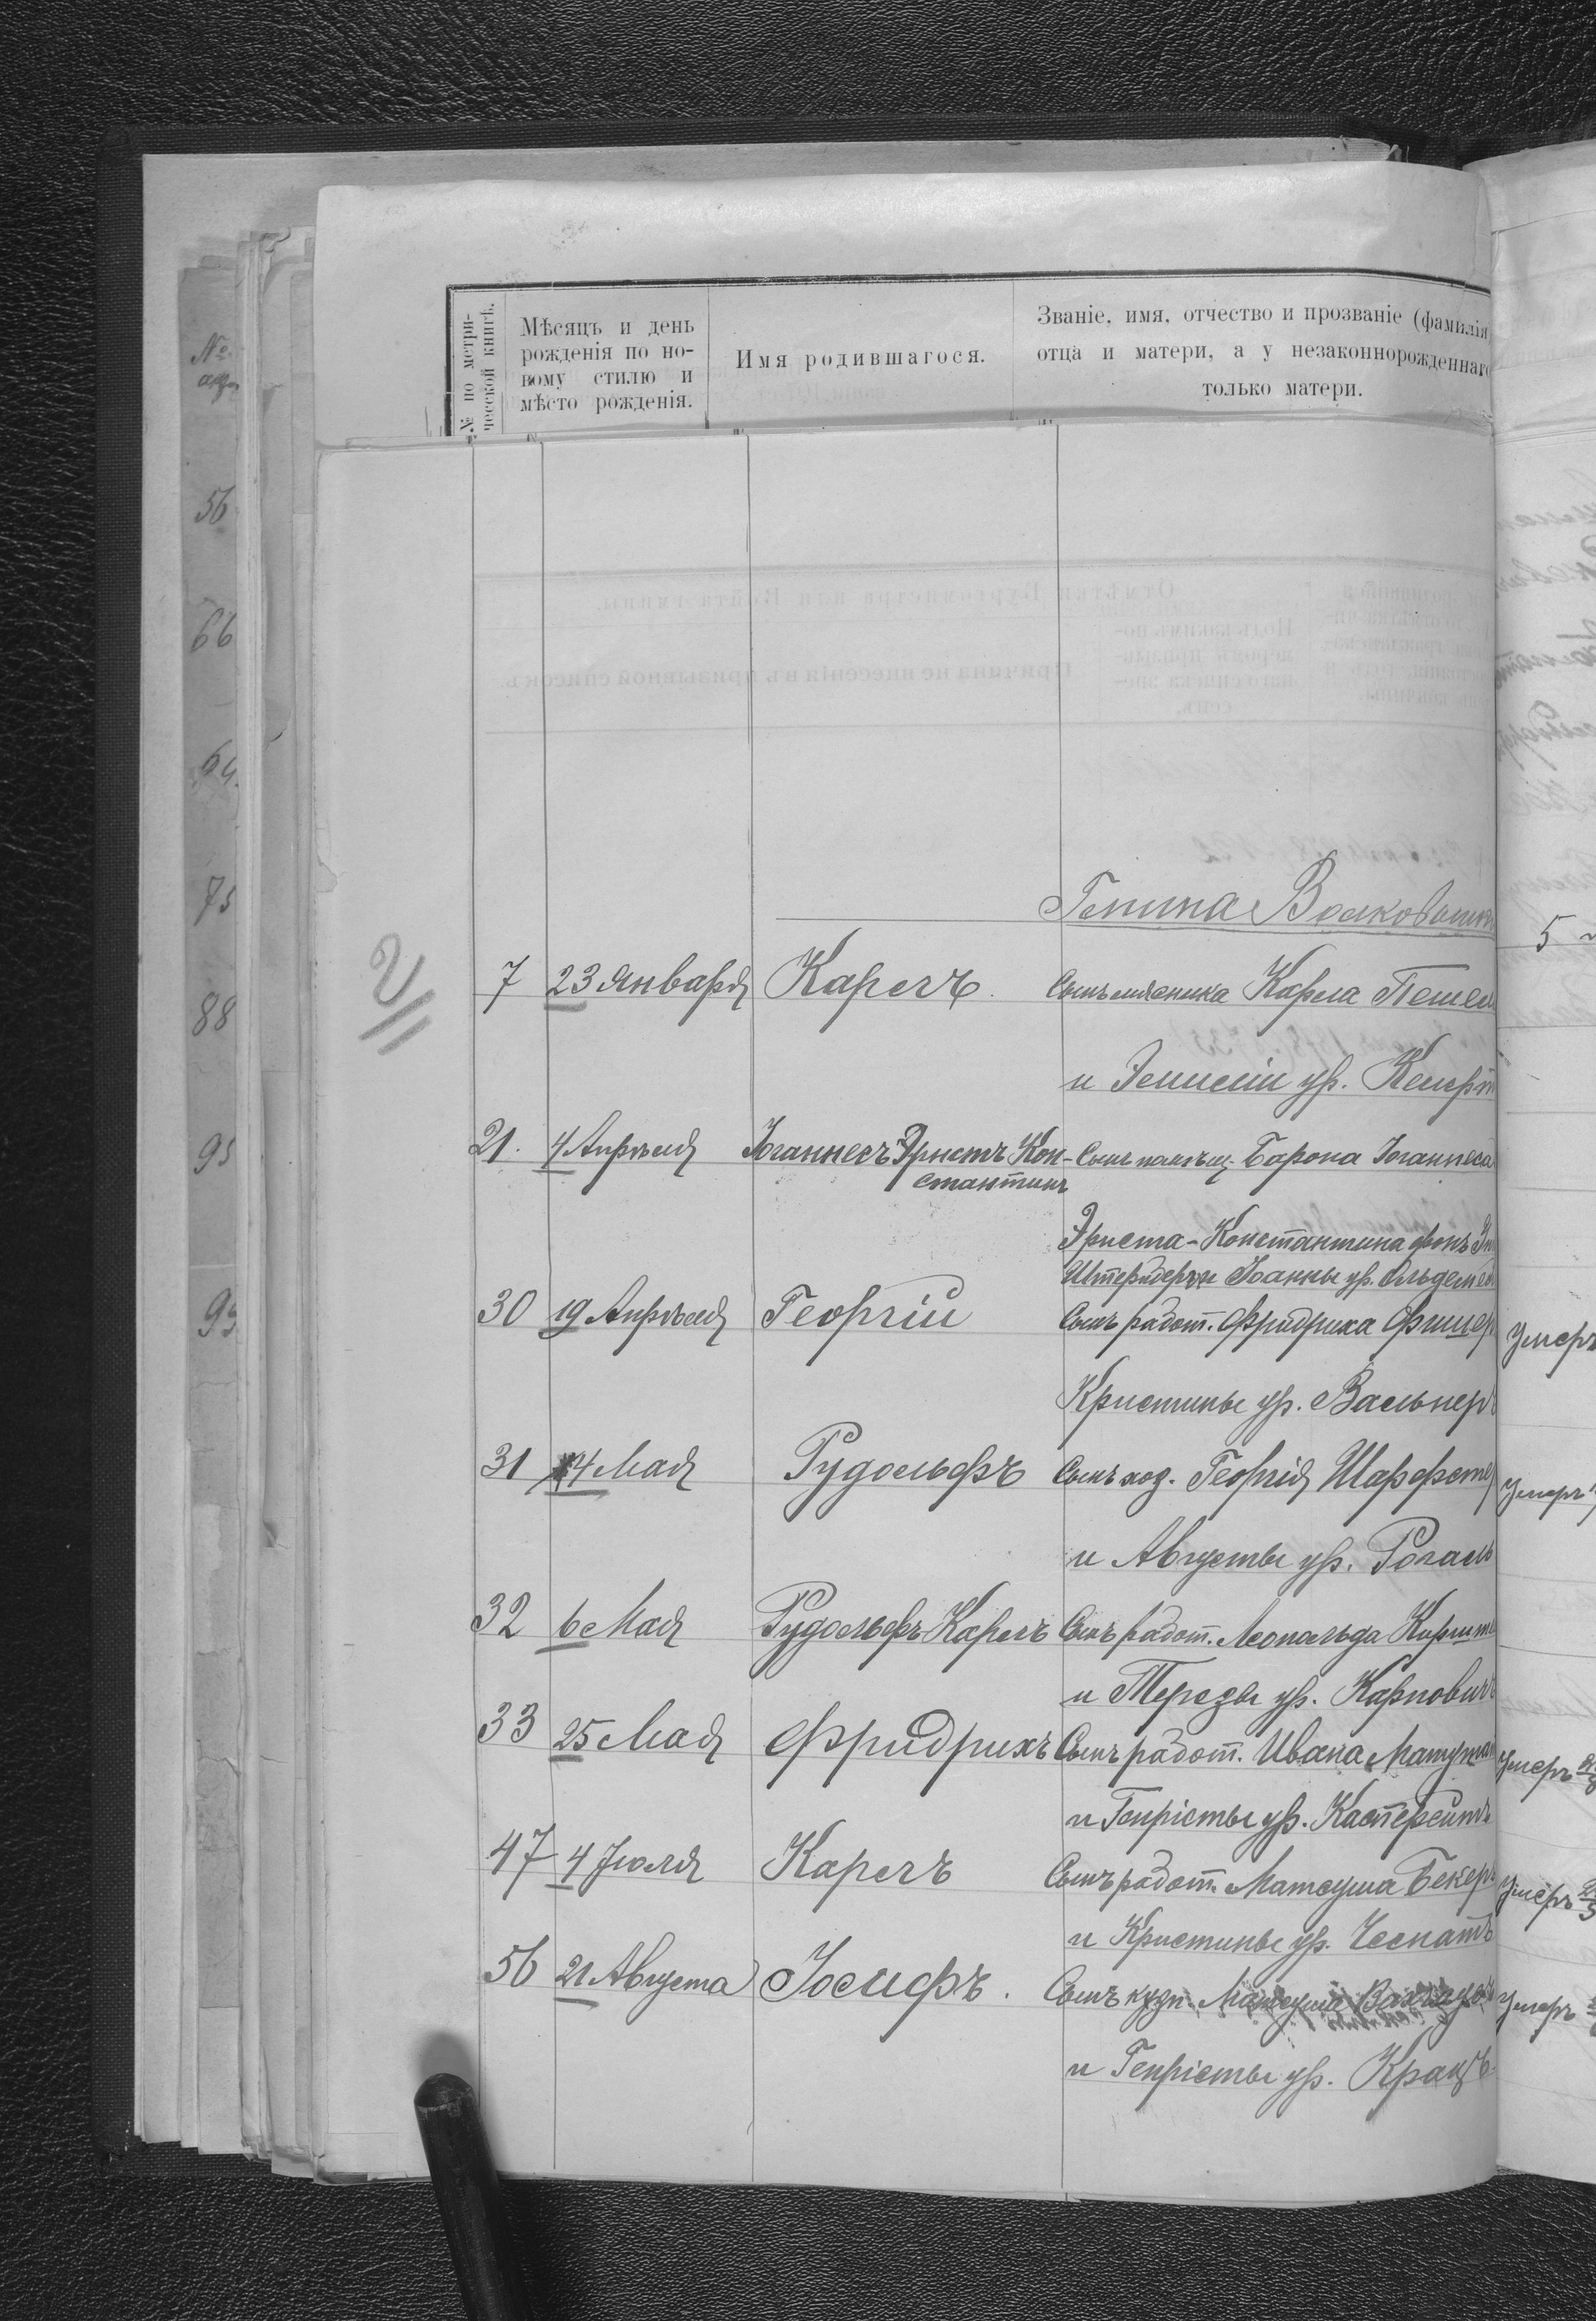 № по метри-
ческой книгѣ.
Мѣсяцъ и день
рожденія по но-
вому стилю и
мѣсто рожденія.
Имя родившагося.
Званіе, имя, отчество и прозваніе (фамилія)
отца и матери, а у незаконнорожденнаго
только матери.
№
56
66
64
75
88
95
Гмина Волковышки
7 23 Января Карлъ. Сынъ мясника Карла Пешел
и Эмиліи ур. Кемрт
21. 4 Апрѣля Іоганнесъ Эрнстъ Кон- Сынъ помѣщ. Барона Іоганнеса
стантинъ
Эрнста-Константина фонъ
Іоанны ур.
30 19 Апрѣля Георгій Сынъ работ. Фридриха Фишер
Умеръ
Кристины ур. Вальнеръ
31 4 Мая Рудольфъ Сынъ хоз. Георгія Шарфште
Умеръ
и Августы ур. Рогаль
32 6 Мая Рудольфъ Карлъ Сынъ работ. Леопольда Киршт
и Терезы ур. Карповичъ
33 25 Мая Фридрихъ Сынъ работ. Ивана
Умеръ
и Генріеты ур. Касперейтъ
47 4 Іюля Карлъ Сынъ работ. Матеуша Бекеръ
Умеръ
и Кристины ур. Чеснатъ
56 21 Августа Іосифъ. Сынъ кузн. Матеуша
Умеръ
и Генріеты ур. Крацъ